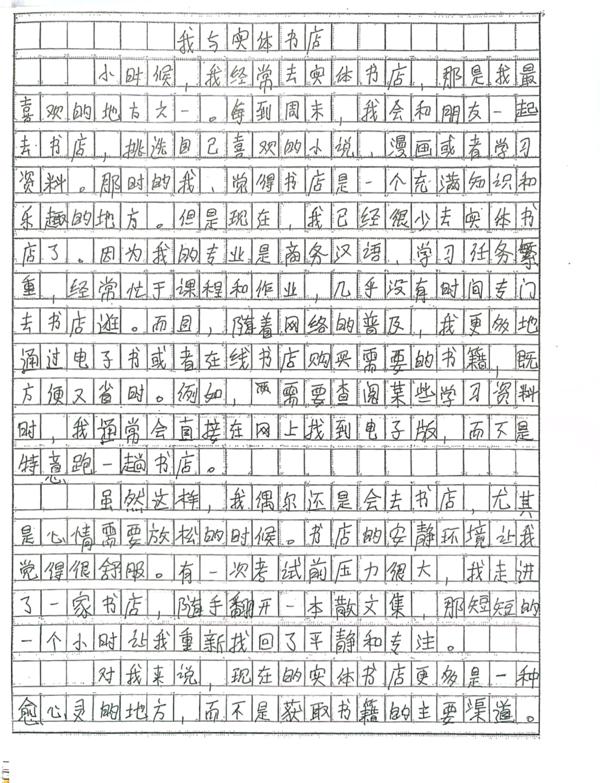 我与实体书店
小时候，我经常去实体书店，那是我最
喜欢的地方之一。每到周末，我会和朋友一起
去书店，挑选自己喜欢的小说、漫画或者学习
资料。那时的我，觉得书店是一个充满知识和
乐趣的地方。但是现在，我已经很少去实体书
店了。因为我的专业是商务汉语，学习任务繁
重，经常忙于课程和作业，几乎没有时间专门
去书店逛。而且，随着网络的普及，我更多地
通过电子书或者在线书店购买需要的书籍，既
方便又省时。例如，需要查阅某些学习资料
时，我通常会直接在网上找到电子版，而不是
特意跑一趟书店。
虽然这样，我偶尔还是会去书店，尤其
是心情需要放松的时候。书店的安静环境让我
觉得很舒服。有一次考试前压力很大，我走进
了一家书店，随手翻开一本散文集，那短短的
一个小时让我重新找回了平静和专注。
对我来说，现在的实体书店更多是一种
愈心灵的地方，而不是获取书籍的主要渠道。